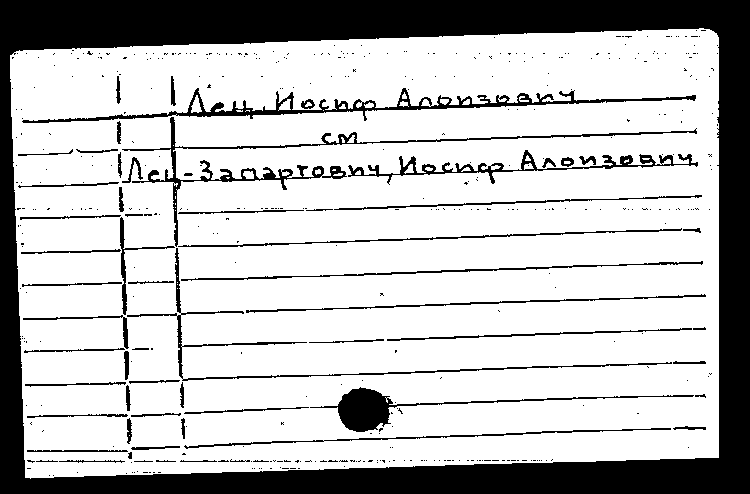 Лец, Иосиф Алоизович
см
Лец-Запартович, Иосиф Алоизович.